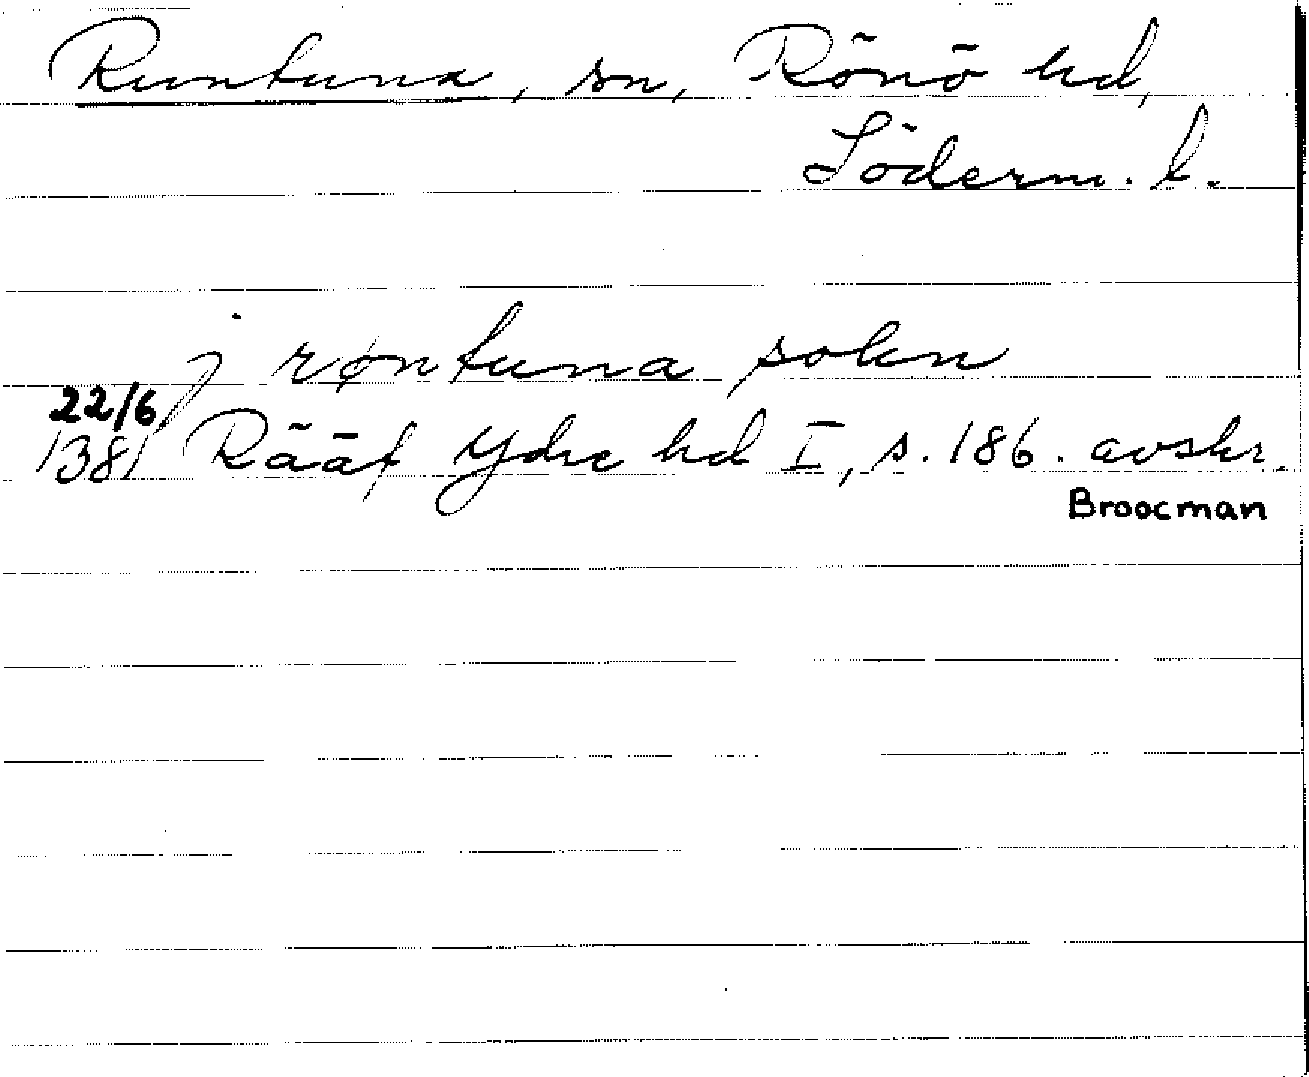 Runtuna, sn, Rönö hd,
Söderm. l.
j røntuna sokn
22/6
1381 Rääf Ydre hd I, s. 186. avskr.
Broocman